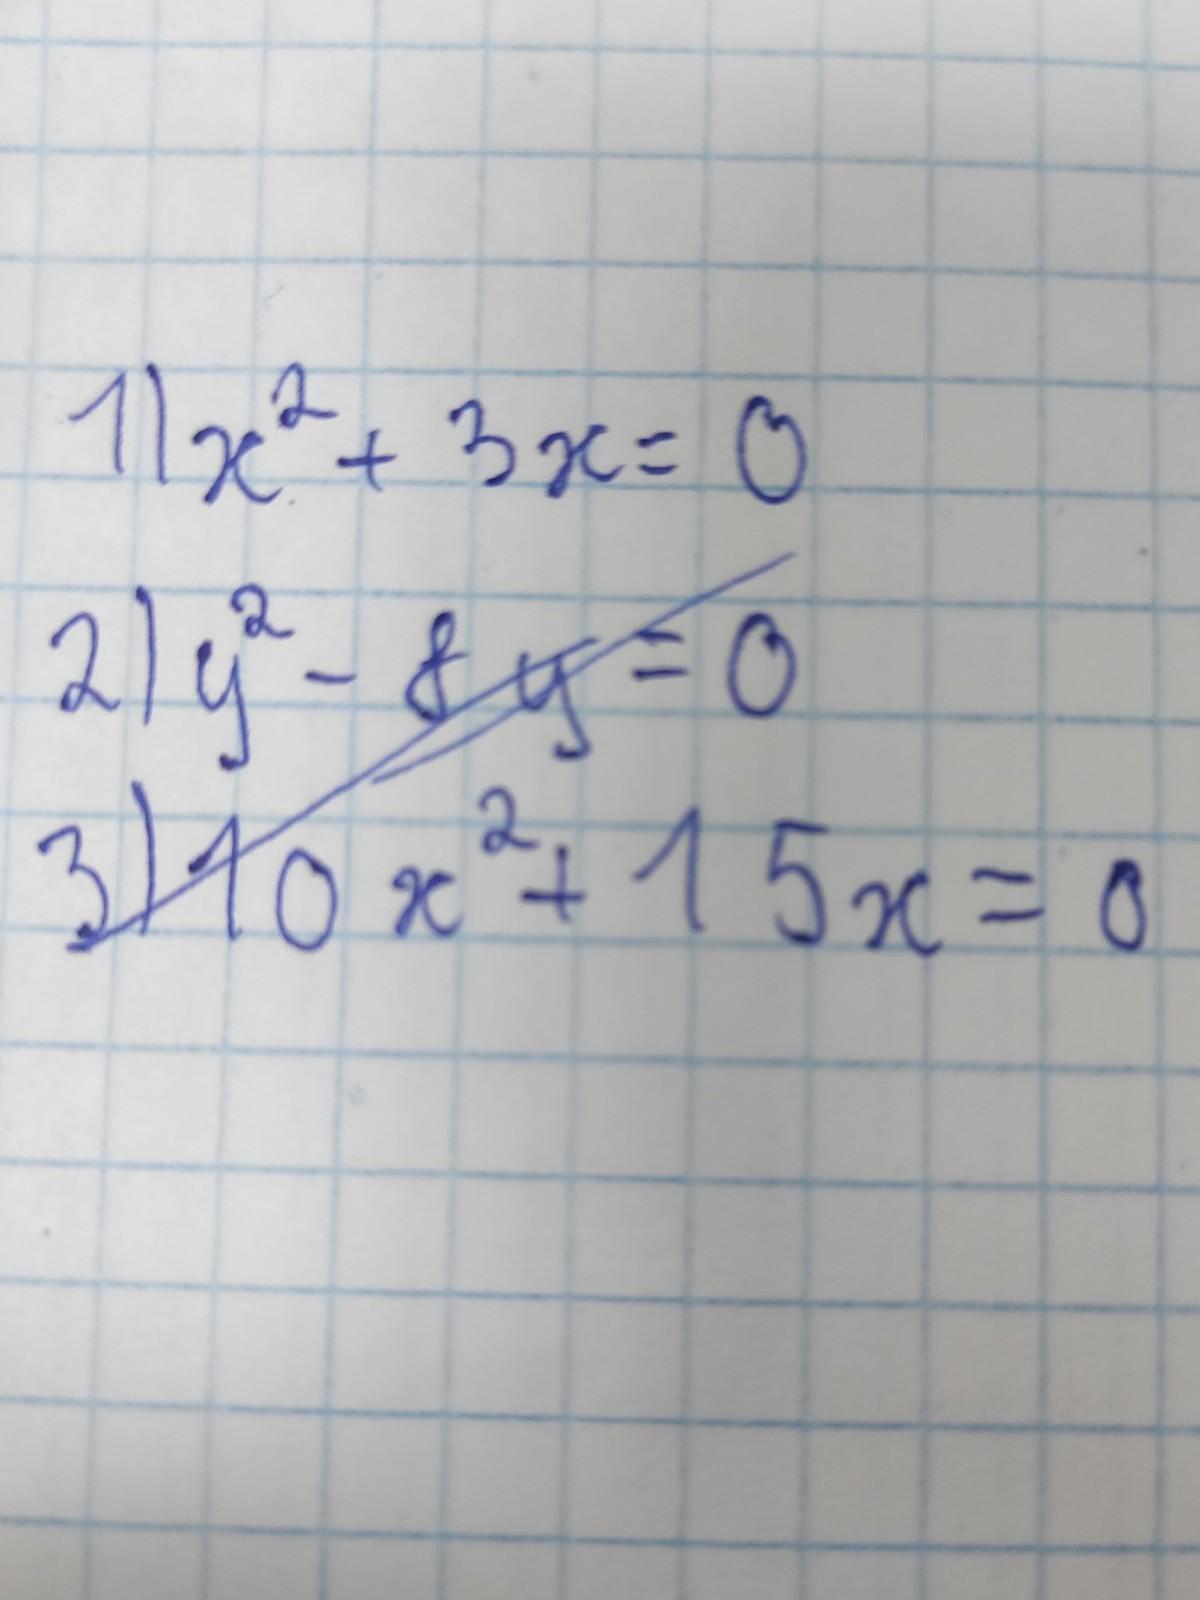 1) x² + 3x = 0
2) y² - 8y = 0
3) 10x² + 15x = 0